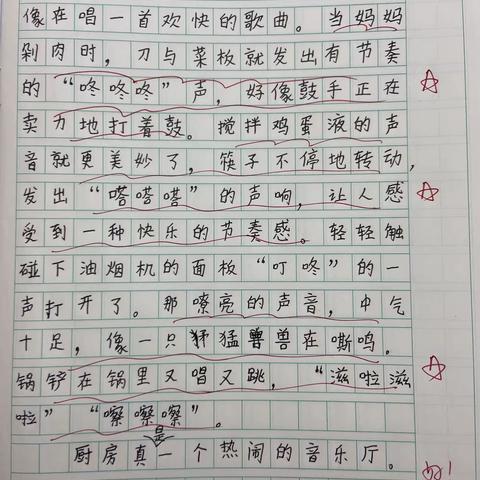 像在唱一首欢快的歌曲。当妈妈
剁肉时，刀与菜板就发出有节奏
的“咚咚咚”声，好像鼓手正在
卖力地打着鼓。搅拌鸡蛋液的声
音就更美妙了，筷子不停地转动，
发出“嗒嗒嗒”的声响，让人感
受到一种快乐的节奏感。轻轻触
碰下油烟机的面板“叮咚”的一
声打开了。那嘹亮的声音，中气
十足，像一只猛兽在嘶鸣。
锅铲在锅里又唱又跳，“滋啦滋
啦”“嚓嚓嚓”。
厨房真是一个热闹的音乐厅。